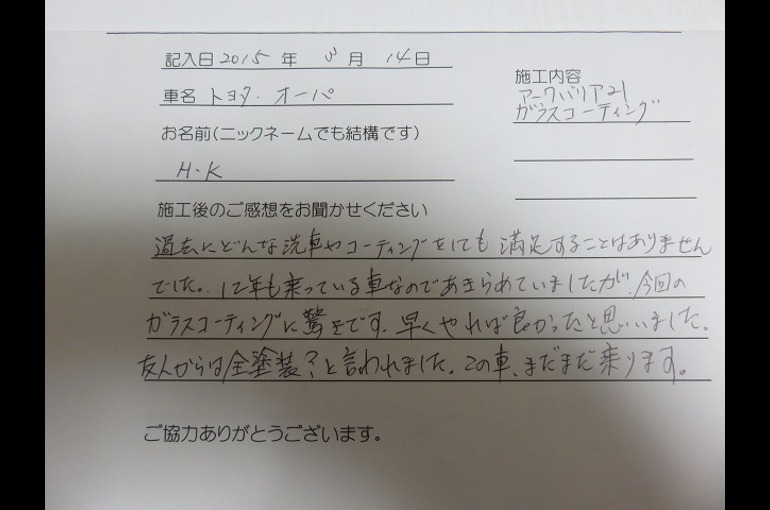 記入日 2015 年 3 月 14 日
車名 トヨタ・オーパ
お名前(ニックネームでも結構です)
H・K
施工内容
アークバリア21
ガラスコーティング
施工後のご感想をお聞かせください
過去にどんな洗車やコーティングをしても満足することはありません
でした。12年も乗っている車なのであきらめていましたが、今回の
ガラスコーティングに驚きです。早くやれば良かったと思いました。
友人からは全塗装?と言われました。この車、まだまだ乗ります。
ご協力ありがとうございます。